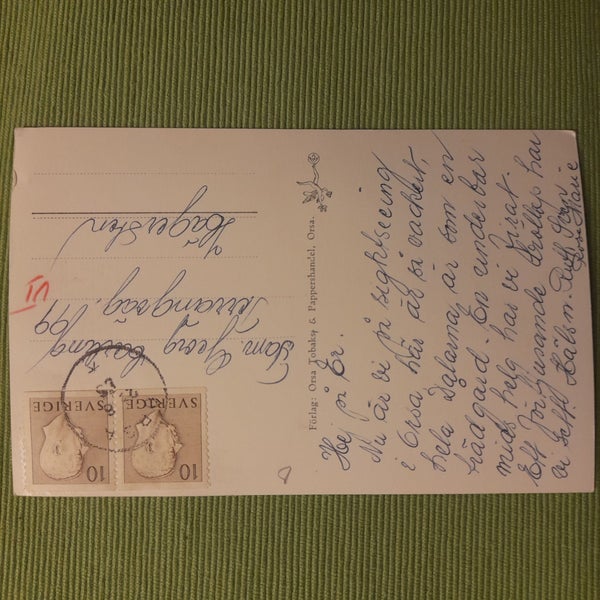 Hej på Er.
Nu är vi på sightseeing
i Orsa här är så vackert,
hela Dalarna är som en
trädgård. En underbar
mids. helg har vi firat.
Ett förtjusande Bröllop har
vi sett. Hälsn. Ruth
Förlag: Orsa Tobaks & Pappershandel, Orsa.
SVERIGE
10
SVERIGE
10
Fam. Georg
Terrängväg. 99
Hägersten
VI